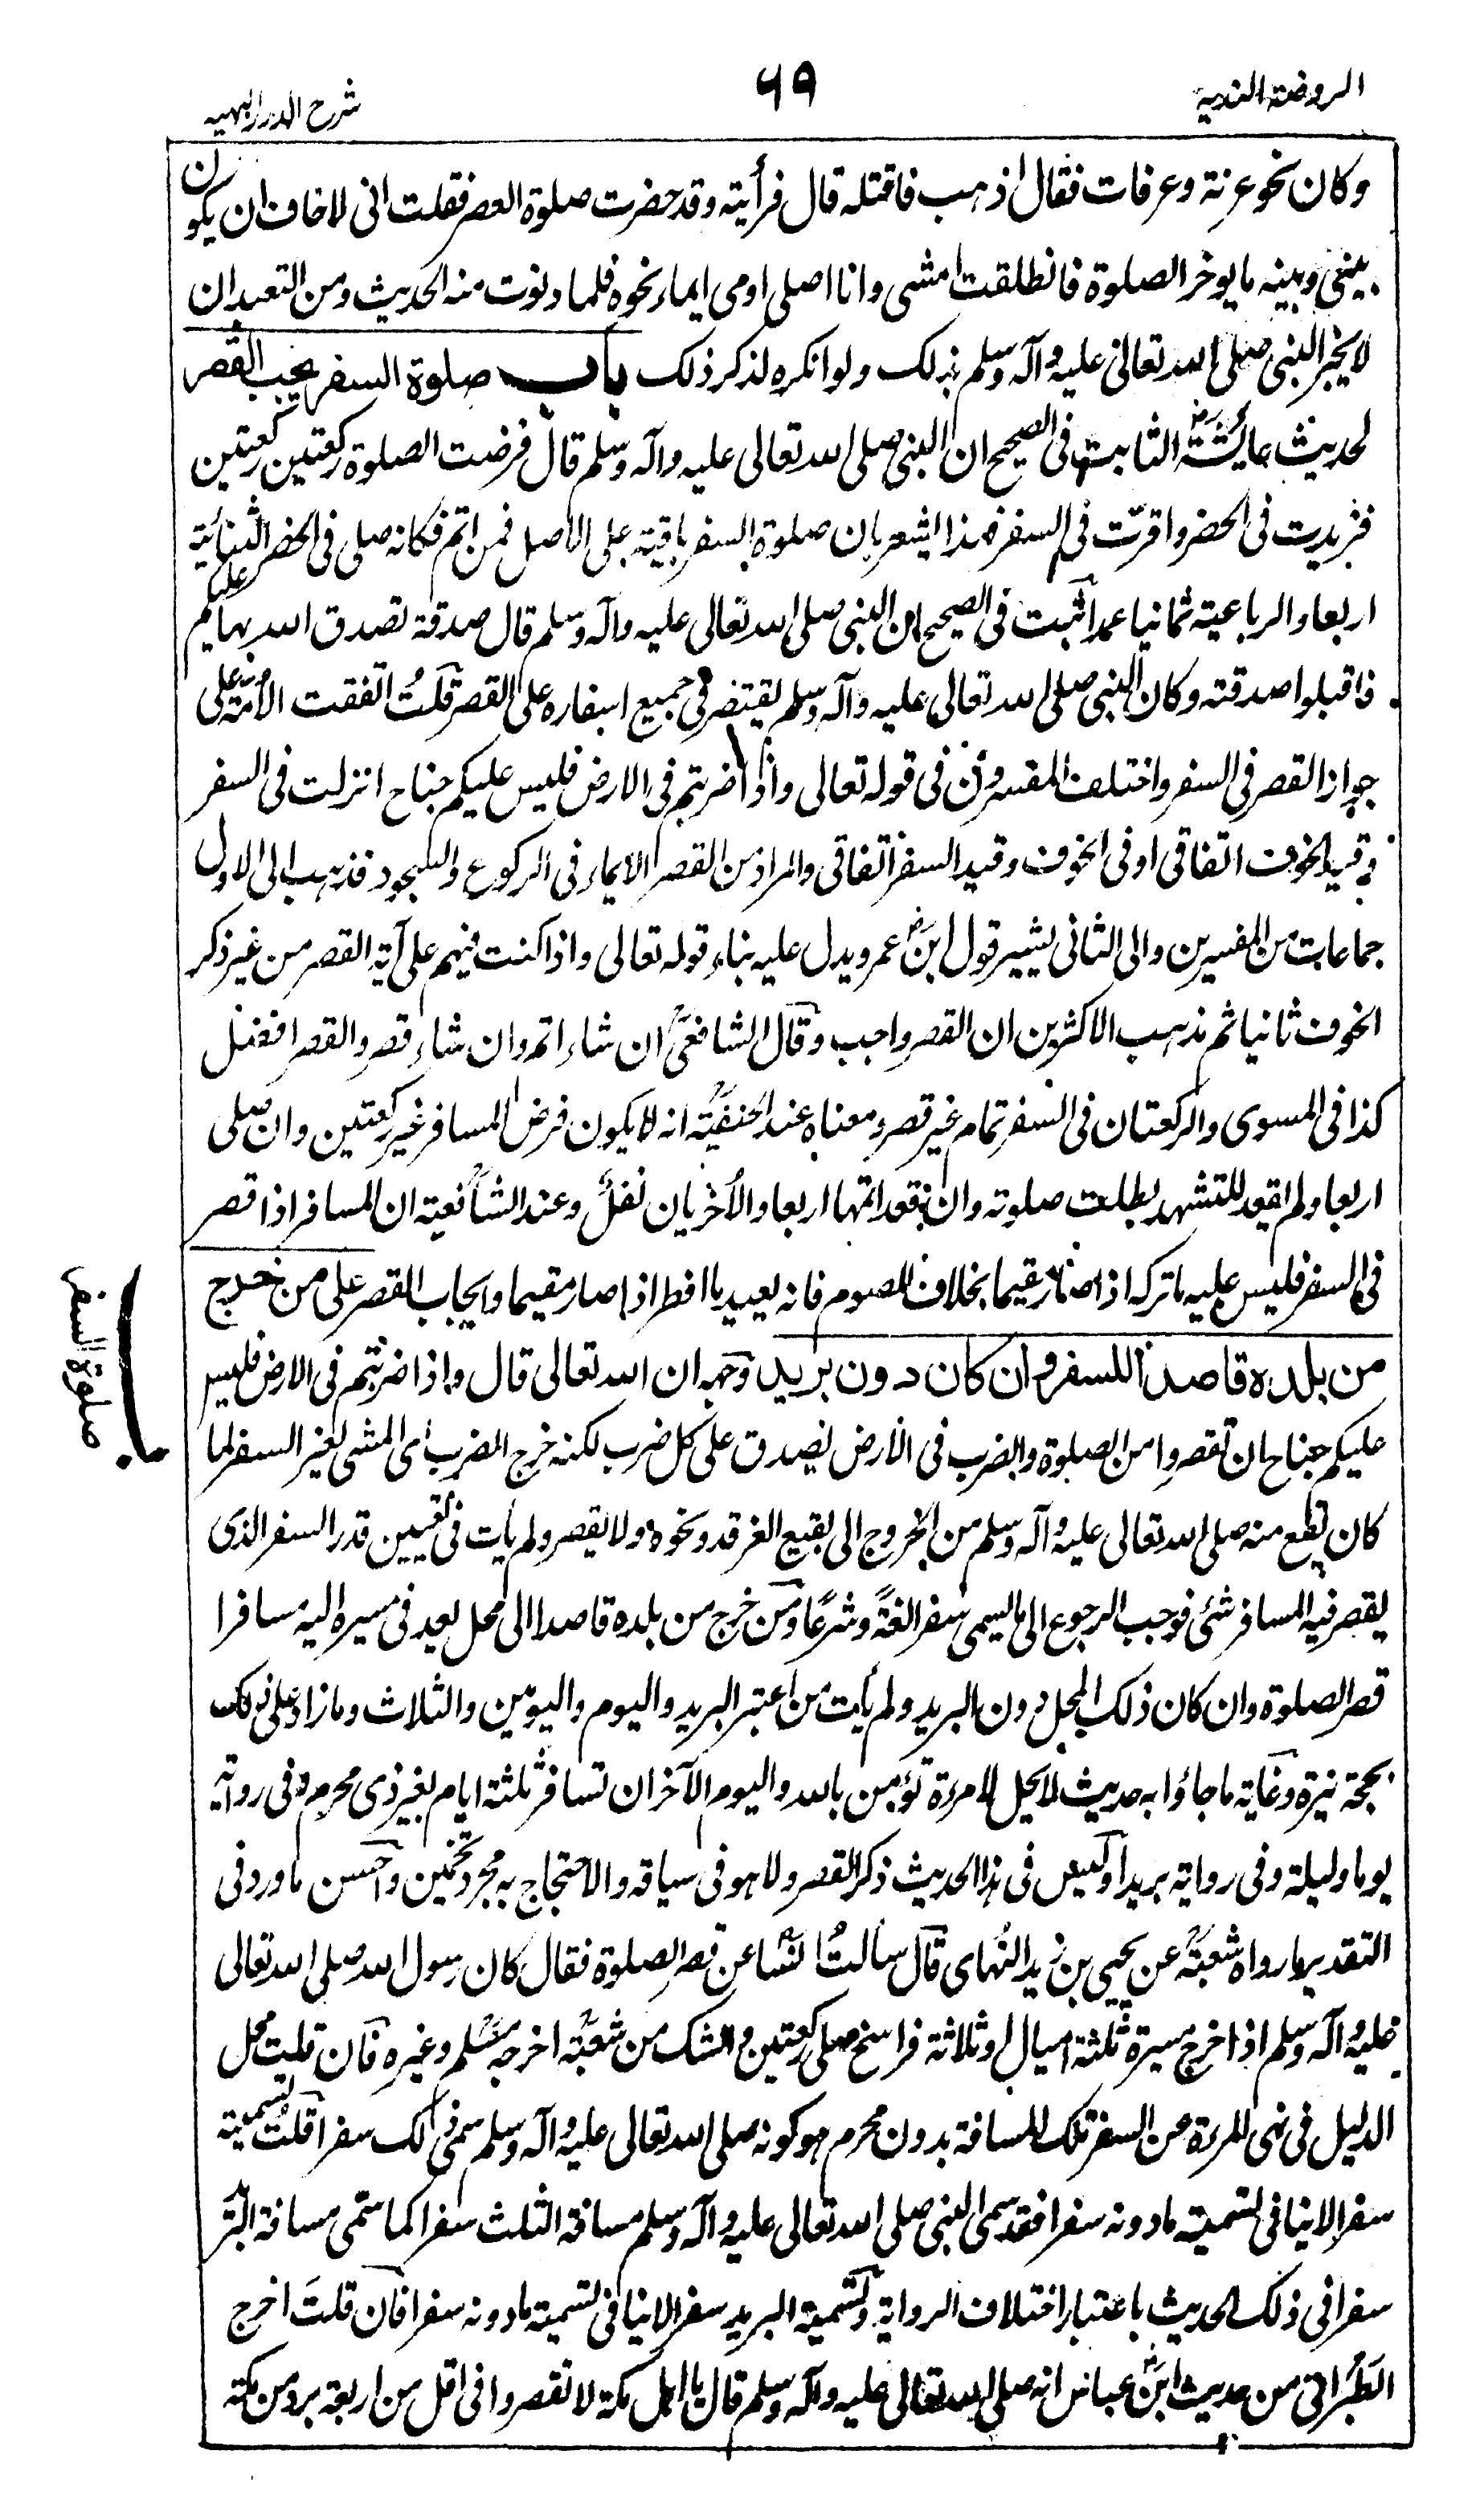 الروضة الندية
٦٩
شرح الدرر البهيه
وكان نحو عرنة وعرفات فقال اذهب فاقتله قال فرأيته وقد حضرت صلوة العصر فقلت انى لاخاف ان يكون
بينى وبينه ما يوخر الصلوة فانطلقت امشى وانا اصلى اومى ايماء نحوه فلما دنوت منه الحديث ومن التعبد ان
لا يخبر النبى صلى الله تعالى عليه وآله وسلم بذلك ولو انكره لذكر ذلك باب صلوة السفر يجب القصر
لحديث عائشة رض الثابت فى الصحيح ان النبى صلى الله تعالى عليه وآله وسلم قال فرضت الصلوة ركعتين ركعتين
فزيدت فى الحضر واقرت فى السفر فهذا يشعر بان صلوة السفر باقية على الاصل فمن اتم فكانه صلى فى الحضر الثنائية
اربعا والرباعية ثمانيا عمدا ثبت فى الصحيح ان النبى صلى الله تعالى عليه وآله وسلم قال صدقة تصدق الله بها عليكم
فاقبلوا صدقته وكان النبى صلى الله تعالى عليه وآله وسلم يقتصر فى جميع اسفاره على القصر قلت اتفقت الأمة على
جواز القصر فى السفر واختلف المفسرون فى قوله تعالى واذا ضربتم فى الارض فليس عليكم جناح انزلت فى السفر
وقيد الخوف اتفاقى او فى الخوف وقيد السفر اتفاقى والمراد من القصر الايماء فى الركوع والسجود فذهب الى الاول
جماعات من المفسرين والى الثانى يشير قول ابن عمر ويدل عليه بناء قوله تعالى واذا كنت فيهم على آية القصر من غير ذكر
الخوف ثانيا ثم مذهب الاكثرين ان القصر واجب وقال الشافعى ان شاء اتم وان شاء قصر والقصر افضل
كذا فى المسوى والركعتان فى السفر تمام غير قصر ومعناه عند الحنفية انه لا يكون فرض المسافر غير ركعتين وان صلى
اربعا ولم يقعد للتشهد بطلت صلوته وان قعد اتمها اربعا والأخريان نفل وعند الشافعية ان المسافر اذا قصر
فى السفر فليس عليه ما تركه اذا صار مقيما بخلاف الصوم فانه يعيد ما افطر اذا صار مقيما وايجاب القصر على من خرج
من بلده قاصدا للسفر وان كان دون بريد وجهه ان الله تعالى قال واذا ضربتم فى الارض فليس
عليكم جناح ان تقصروا من الصلوة والضرب فى الارض يصدق على كل ضرب لكنه خرج الضرب اى المشى لغير السفر لما
كان يقع منه صلى الله تعالى عليه وآله وسلم من الخروج الى بقيع الغرقد ونحوه ولا يقصر ولم يأت فى تعيين قدر السفر الذى
يقصر فيه المسافر شئ فوجب الرجوع الى ما يسمى سفرا لغةً وشرعًا ومن خرج من بلده قاصدا الى محل يعد فى مسيره اليه مسافرا
قصر الصلوة وان كان ذلك المحل دون البريد ولم يأت من اعتبر البريد واليوم واليومين والثلاث وما زاد على ذلك
بحجة نيرة وغاية ما جاؤا به حديث لا يحل لامرءة تؤمن بالله واليوم الآخر ان تسافر ثلثة ايام بغير ذى محرم وفى رواية
يوما وليلة وفى رواية بريدا وليس فى هذا الحديث ذكر القصر ولا هو فى سياقه والاحتجاج به مجرد تخمين واحسن ما ورد فى
التقدير ما رواه شعبة عن يحيى بن زيد النهاى قال سألت انسا عن قصر الصلوة فقال كان رسول الله صلى الله تعالى
عليه وآله وسلم اذا خرج مسيرة ثلثة اميال او ثلاثة فراسخ صلى ركعتين والشك من شعبة اخرجه مسلم وغيره فان قلت محل
الدليل فى نهى المرءة عن السفر تلك المسافة بدون محرم هو كونه صلى الله تعالى عليه وآله وسلم سمى ذلك سفرا قلت تسميته
سفرا لا ينافى تسمية ما دونه سفرا فقد سمى النبى صلى الله تعالى عليه وآله وسلم مسافة الثلث سفرا كما سمى مسافة البريد
سفرا فى ذلك الحديث باعتبار اختلاف الرواية وتسمية البريد سفرا لا ينافى تسمية ما دونه سفرا فان قلت اخرج
الطبرانى من حديث ابن عباس انه صلى الله تعالى عليه وآله وسلم قال يا اهل مكة لا تقصروا فى اقل من اربعة برد من مكة
صلوة السفر